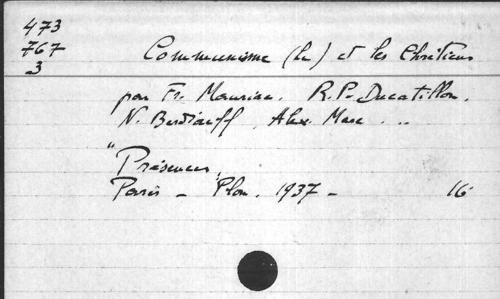 473
767
3
Communisme (Le) et les Chrétiens
par Fr. Mauriac. R.P. Ducatillon.
N. Berdiaeff, Alex. Marc. ..
"Présences"
Paris - Plon. 1937 - 16